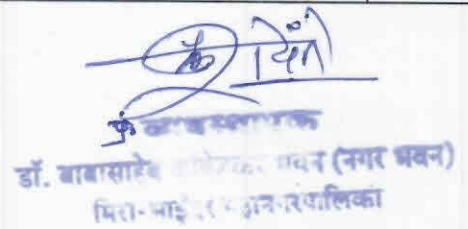 व्यवस्थापक
डॉ. बाबासाहेब आंबेडकर भवन (नगर भवन)
मिरा-भाईंदर महानगरपालिका